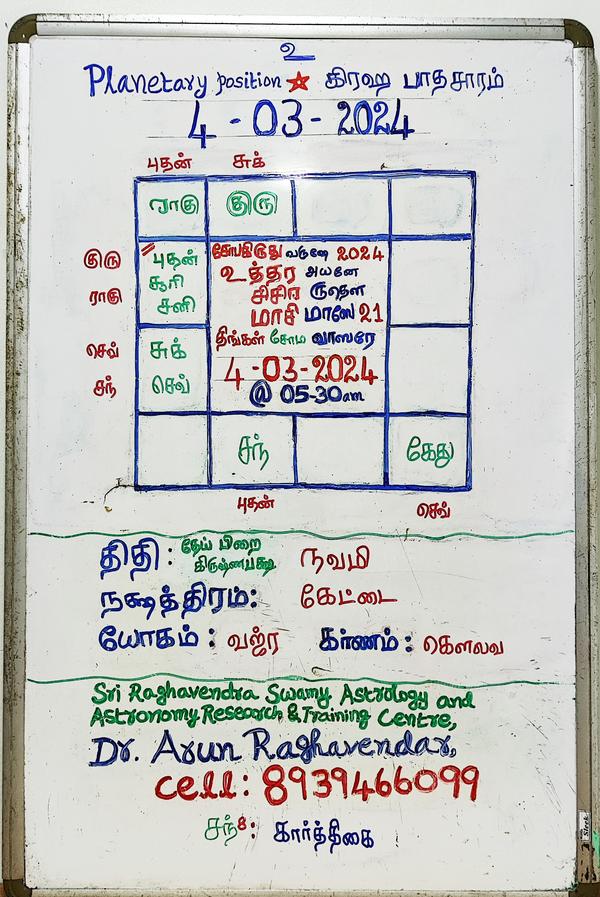 உ
Planetary position ★ கிரஹ பாதசாரம்
4-03-2024
புதன் சுக்
ராகு குரு
குரு
ராகு
புதன்
சூரி
சனி
சோபகிருது வருஷே 2024
உத்தர அயனே
சிசிர ருதௌ
மாசி மாஸே 21
திங்கள் சோம வாஸரே
4-03-2024
@ 05-30am
செவ்
சந்
சுக்
செவ்
சந் கேது
புதன் செவ்
திதி: தேய் பிறை
கிருஷ்ணபக்ஷ நவமி
நக்ஷத்திரம்: கேட்டை
யோகம்: வஜ்ர கர்ணம்: கௌலவ
Sri Raghavendra Swamy Astrology and
Astronomy Research & Training Centre,
Dr. Arun Raghavendar,
cell: 8939466099
சந்8: கார்த்திகை